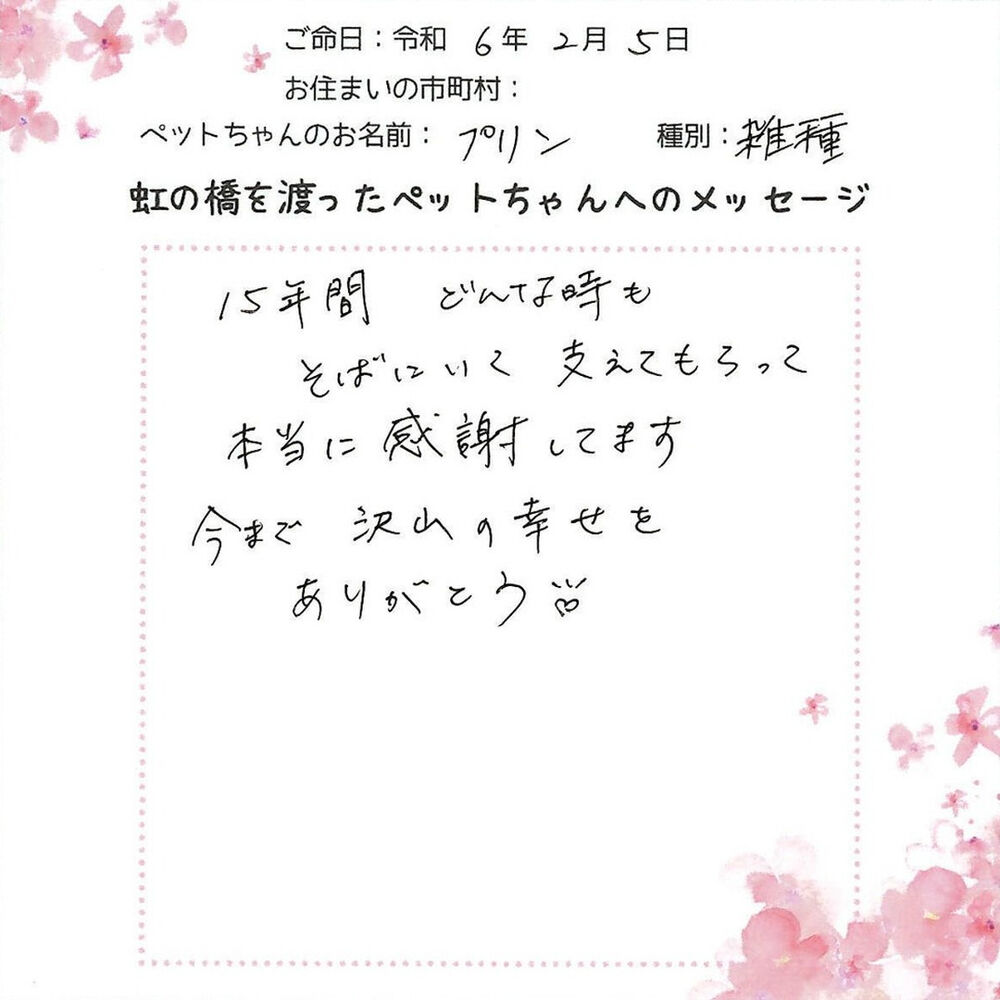 ご命日：令和 6年 2月 5日
お住まいの市町村：
ペットちゃんのお名前： プリン 種別：雑種
虹の橋を渡ったペットちゃんへのメッセージ
15年間 どんな時も
そばにいて 支えてもらって
本当に感謝してます
今まで 沢山の幸せを
ありがとう